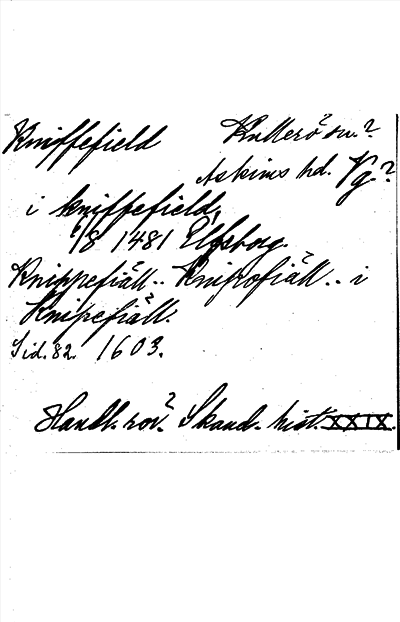 Kniffefield
Kullerö sn.?
Askims hd. Vg?
i kniffefield,
1/8 1481 Elfsborg.
Knippefiäll.. Kniprofiäll.. i
Knipefiäll.
Sid. 82. 1603.
Handl. rör. Skand. hist. XXIX.